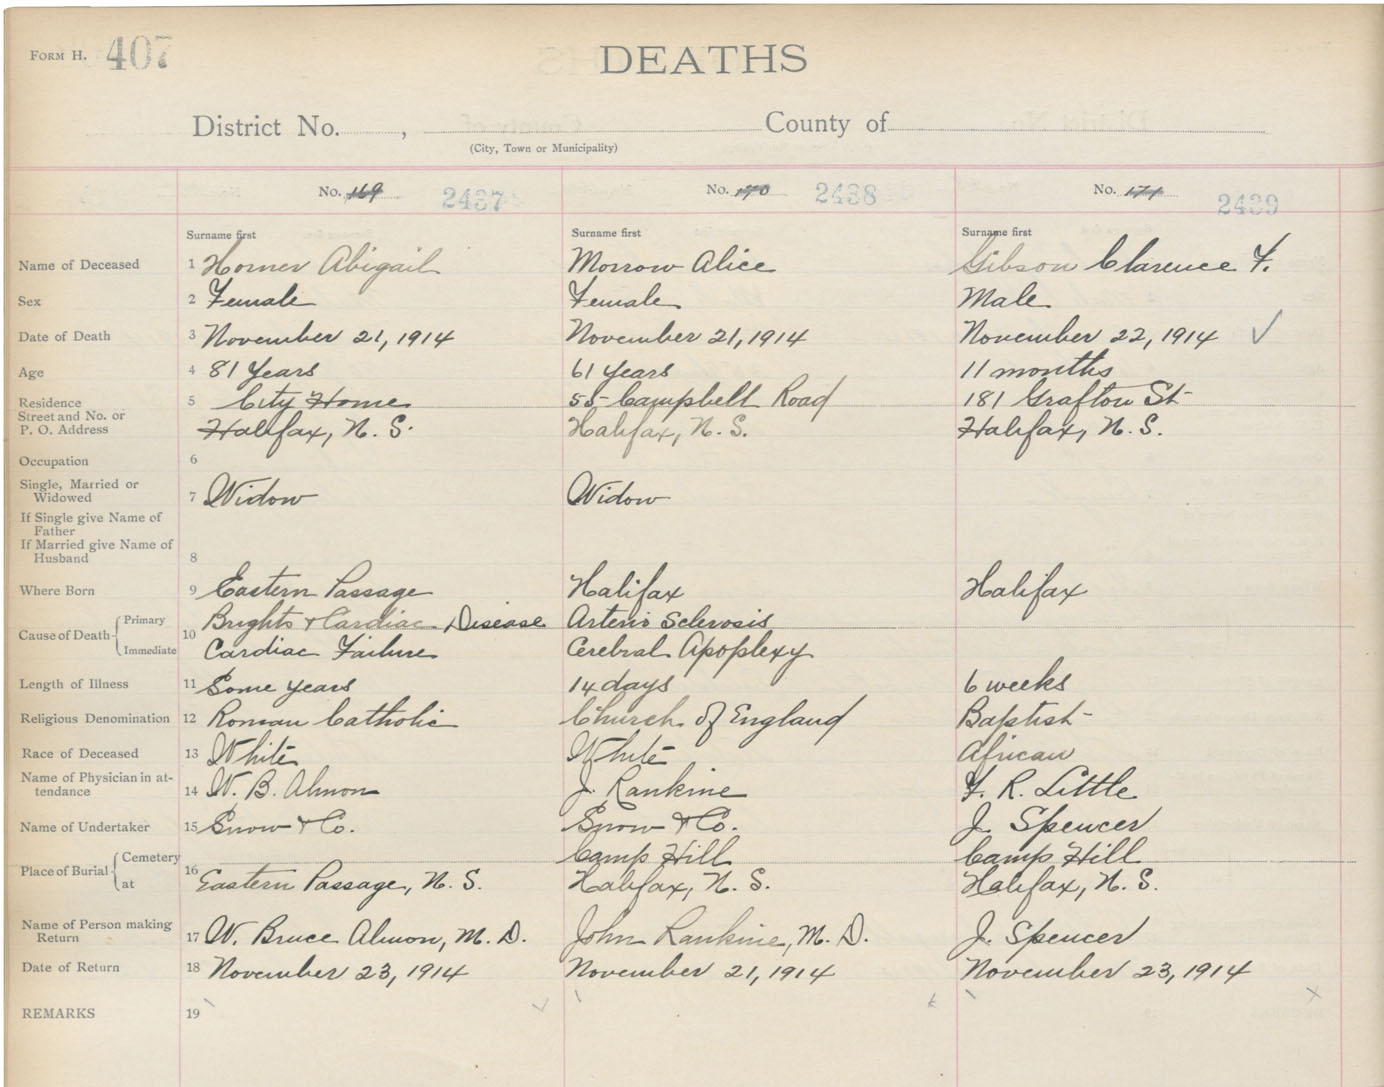 FORM H. 407
DEATHS
District No. , County of
(City, Town or Municipality)
No. 169 2437 No. 170 2438 No. 171 2439
Surname first Surname first Surname first
Name of Deceased 1 Horner Abigail Morrow Alice Gibson Clarence F.
Sex 2 Female Female Male
Date of Death 3 November 21, 1914 November 21, 1914 November 22, 1914 ✓
Age 4 81 Years 61 years 11 months
Residence 5 City Home 55 Campbell Road 181 Grafton St
Street and No. or
P. O. Address Halifax, N. S. Halifax, N. S. Halifax, N. S.
Occupation 6
Single, Married or
Widowed 7 Widow Widow
If Single give Name of
Father
If Married give Name of
Husband 8
Where Born 9 Eastern Passage Halifax Halifax
Cause of Death Primary 10 Brights + Cardiac Disease Arterio Sclerosis
Immediate Cardiac Failure Cerebral Apoplexy
Length of Illness 11 Some years 14 days 6 weeks
Religious Denomination 12 Roman Catholic Church of England Baptist
Race of Deceased 13 White White African
Name of Physician in at-
tendance 14 W. B. Almon J. Rankine F. R. Little
Name of Undertaker 15 Snow + Co. Snow + Co. J. Spencer
Place of Burial Cemetery 16 Camp Hill Camp Hill
at Eastern Passage, N. S. Halifax, N. S. Halifax, N. S.
Name of Person making
Return 17 W. Bruce Almon, M. D. John Rankine, M. D. J. Spencer
Date of Return 18 November 23, 1914 November 21, 1914 November 23, 1914
REMARKS 19